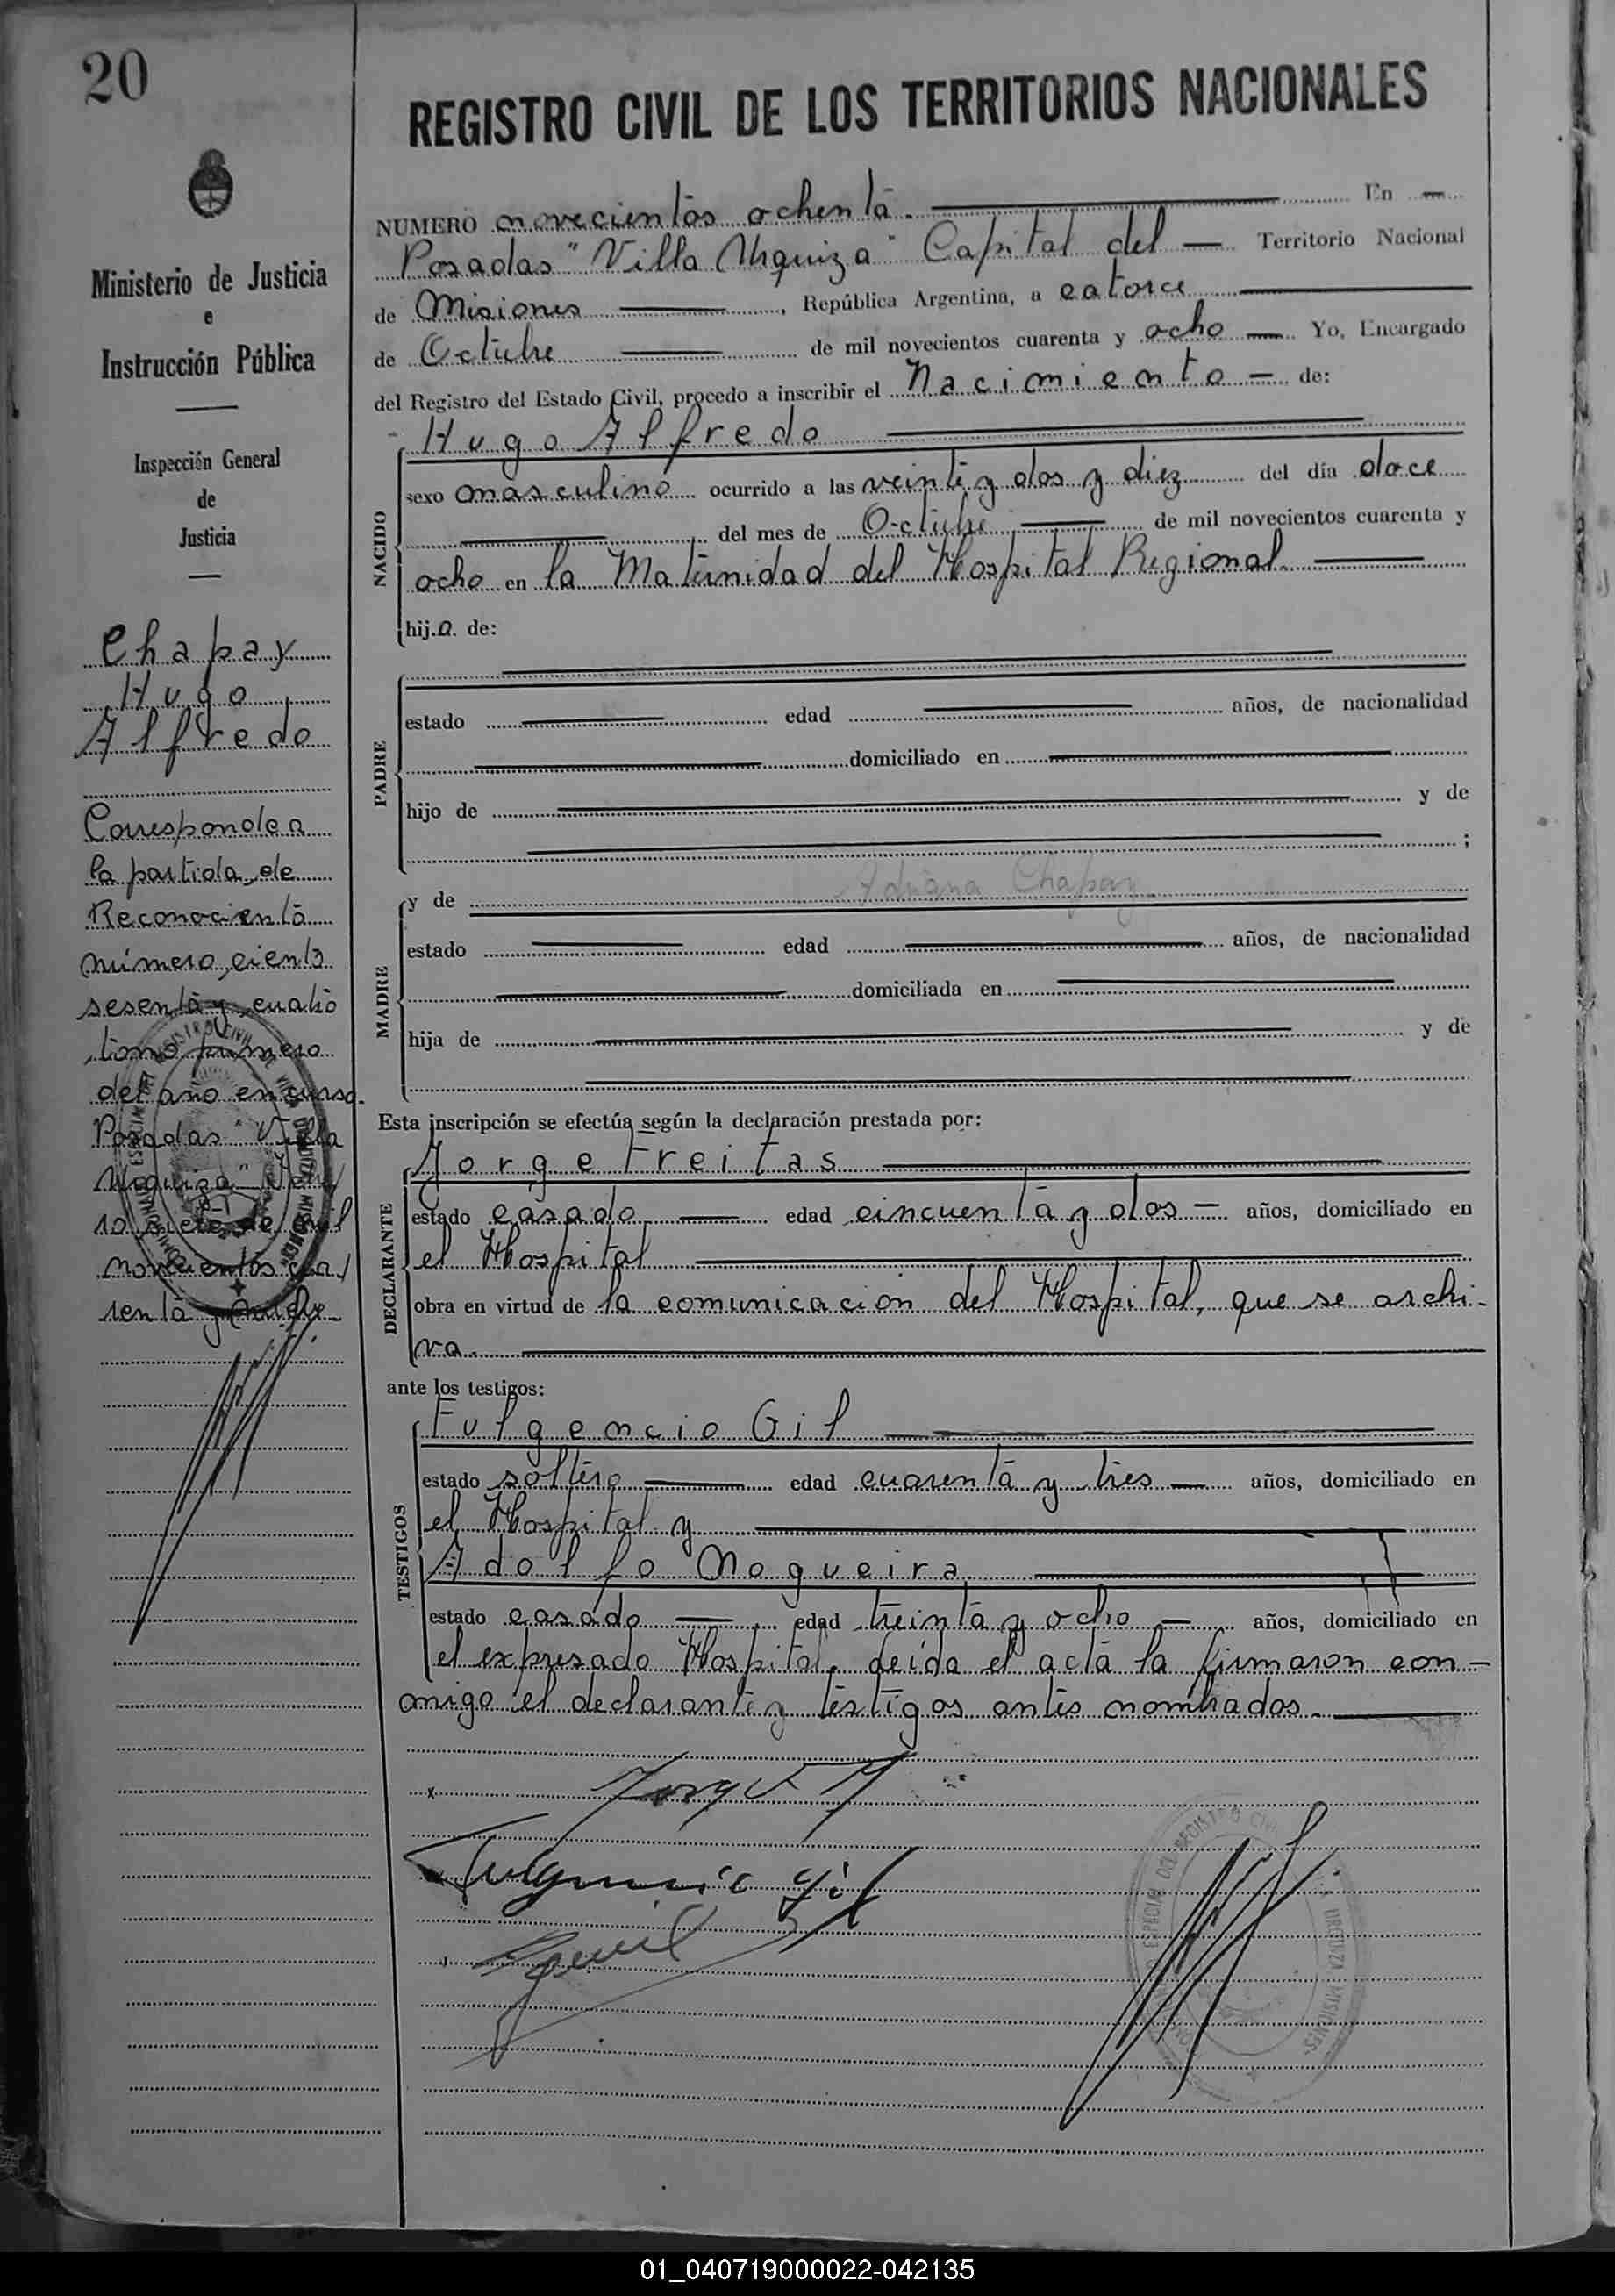 20
Ministerio de Justicia
e
Instrucción Pública
Inspección General
de
Justicia
Chapay
Hugo
Alfredo
Corresponde a
la partida de
Reconocientō
número ciento
sesenta y cuatro
tomo primero
del año en curso.
Posadas "Villa
Urquiza"
siete de
novecientos cua/
renta y nueve
REGISTRO CIVIL DE LOS TERRITORIOS NACIONALES
NUMERO novecientos ochenta. En
Posadas "Villa Urquiza" Capital del Territorio Nacional
de Misiones, República Argentina, a catorce
de Octubre de mil novecientos cuarenta y ocho Yo, Encargado
del Registro del Estado Civil, procedo a inscribir el Nacimiento de:
Hugo Alfredo
NACIDO
sexo masculino ocurrido a las veinte y dos y diez del día doce
del mes de Octubre de mil novecientos cuarenta y
ocho en la Maternidad del Hospital Regional
hijo. de:
PADRE
estado edad años, de nacionalidad
domiciliado en
hijo de y de
;
MADRE
y de Adriana Chapay
estado edad años, de nacionalidad
domiciliada en
hija de y de
Esta inscripción se efectúa según la declaración prestada por:
DECLARANTE
Jorge Freitas
estado casado edad cincuenta y dos años, domiciliado en
el Hospital
obra en virtud de la comunicación del Hospital, que se archi-
va.
ante los testigos:
TESTIGOS
Fulgencio Gil
estado soltero edad cuarenta y tres años, domiciliado en
el Hospital y
Adolfo Nogueira
estado casado edad treinta y ocho años, domiciliado en
el expresado Hospital. Leída el acta la firmaron con-
migo el declarante y testigos antes nombrados.
x
Fulgencio Gil
01_040719000022-042135